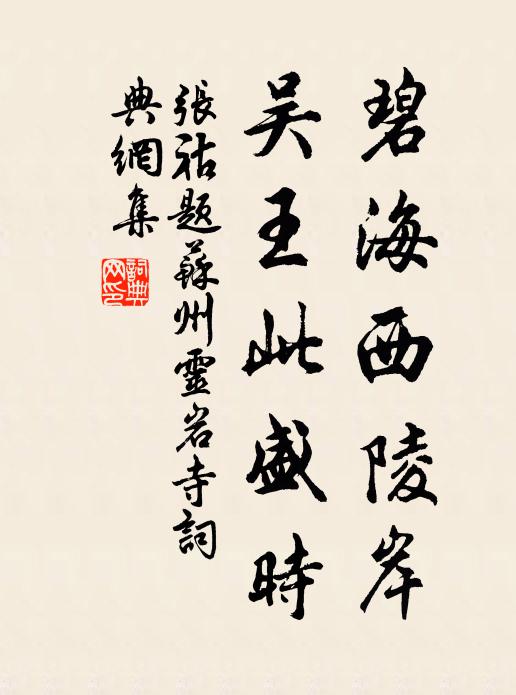 碧海西陵岸
吴王此盛時
張祜題蘇州靈岩寺詞
典網集
詞典
网印